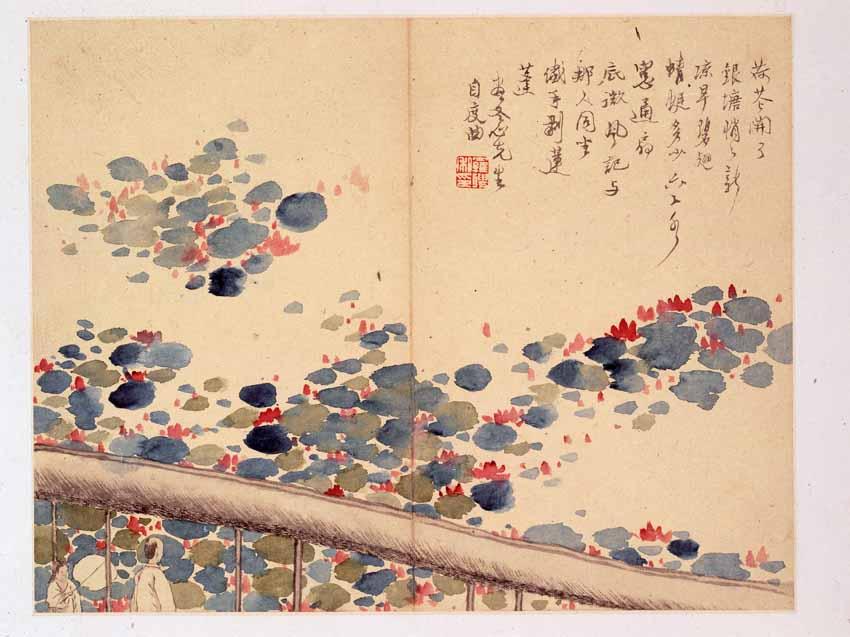 荷花開了
銀塘悄〻新
涼早碧翅
蜻蜓多少六〻水
窻通扇
底微風記与
那人同坐
纖手剝蓮
蓬
冬心先生
自度曲